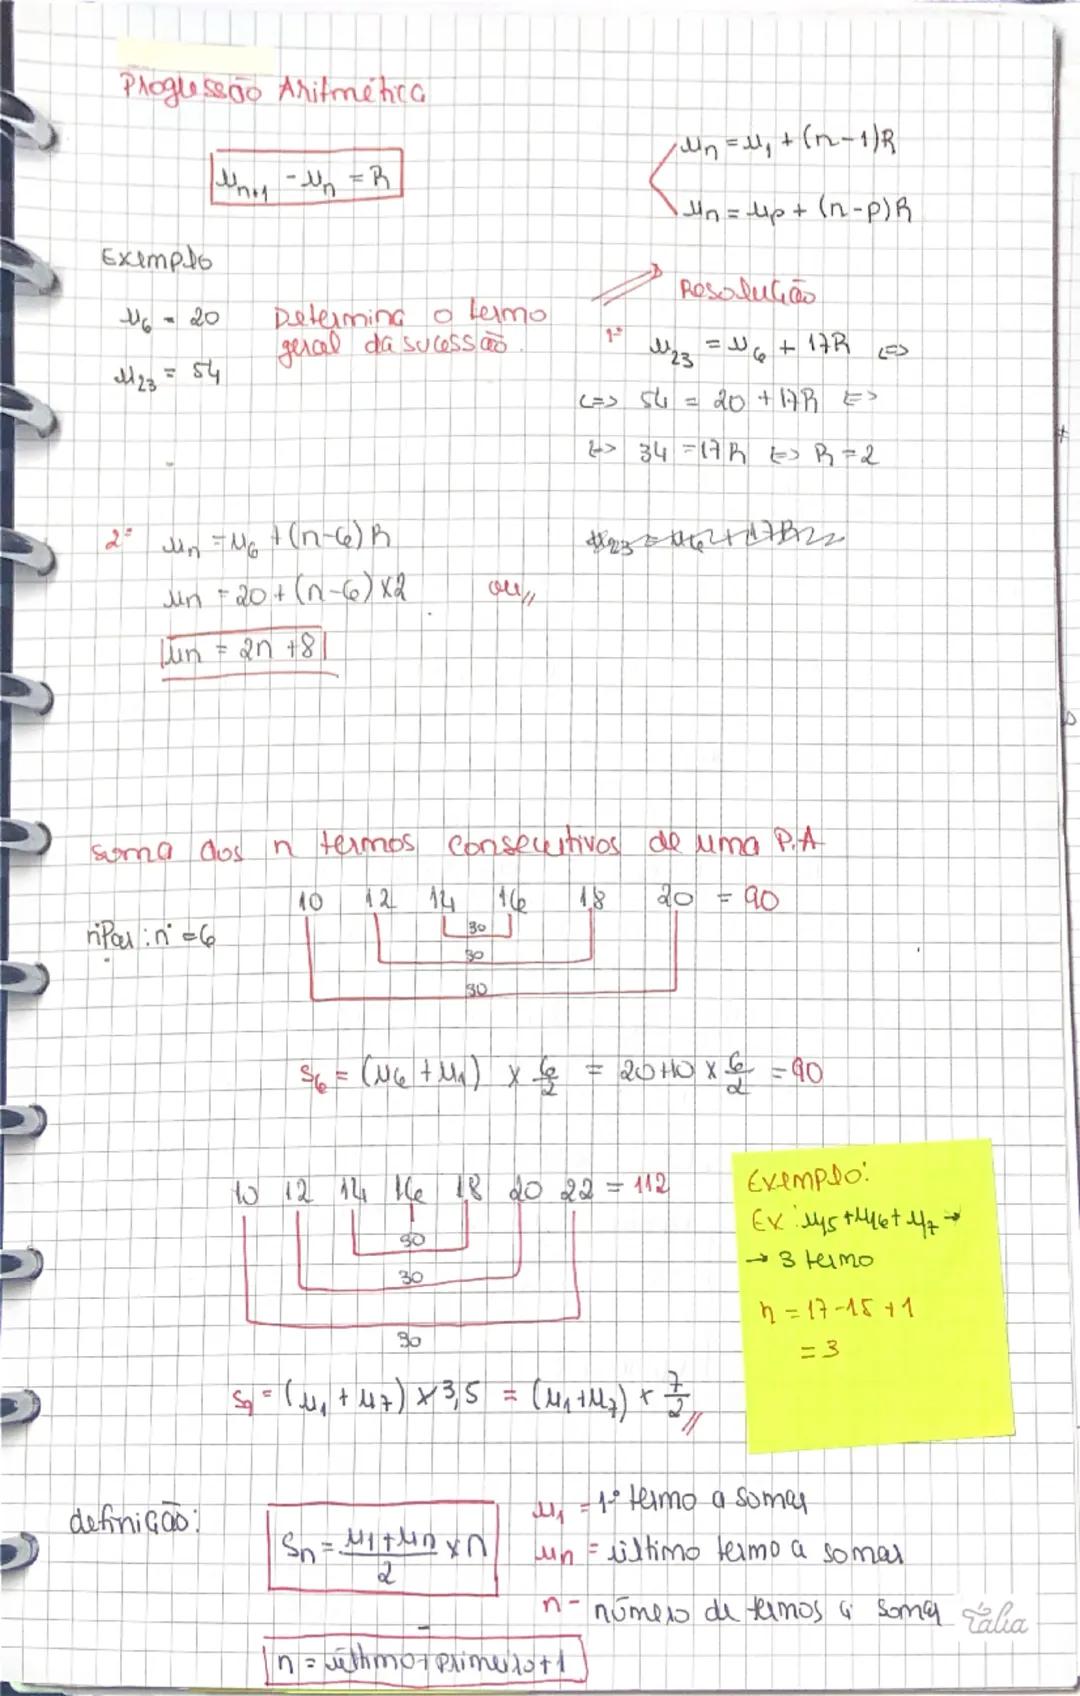 Progressão Aritmética
u_{n+1} - u_n = R
u_n = u_1 + (n-1)R
u_n = u_p + (n-p)R
Exemplo
u_6 = 20
u_23 = 54
Determina o termo
geral da sucessão.
Resolução
1º u_23 = u_6 + 17R <=>
<=> 54 = 20 + 17R <=>
<=> 34 = 17R <=> R = 2
2º u_n = u_6 + (n-6)R
u_n = 20 + (n-6)×2 ou,,
u_n = 2n + 8
soma dos n termos consecutivos de uma P.A
10 12 14 16 18 20 = 90
nºPar : n = 6
30
30
30
S_6 = (u_6 + u_1) × 6/2 = 20+10 × 6/2 = 90
10 12 14 16 18 20 22 = 112
30
30
30
S_9 = (u_1 + u_7) × 3,5 = (u_1 + u_7) × 7/2 //
Exemplo:
Ex: u_15 + u_16 + u_17 →
→ 3 termo
n = 17-15+1
= 3
definição:
S_n = (u_1 + u_n)/2 × n
u_1 = 1º termo a somar
u_n = último termo a somar
n - número de termos a somar
n = último + primeiro + 1
Tália